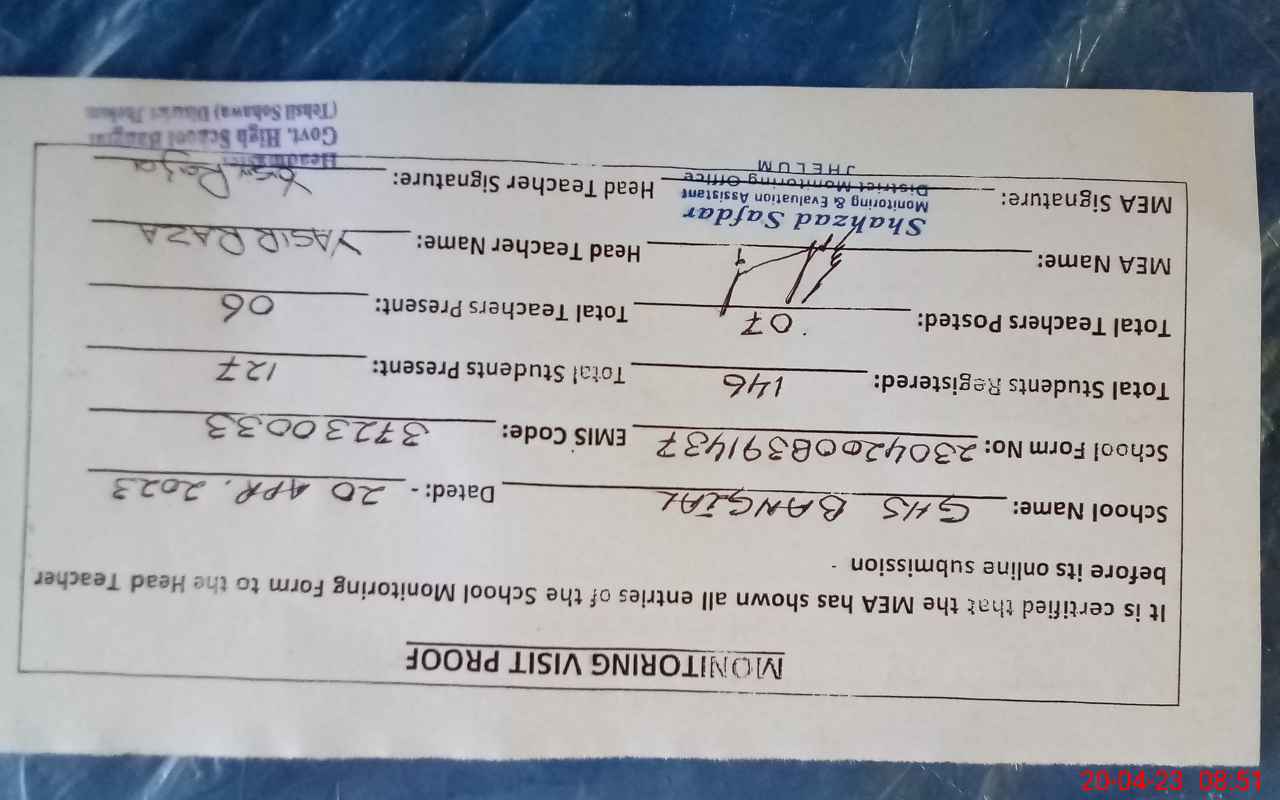 MONITORING VISIT PROOF
It is certified that the MEA has shown all entries of the School Monitoring Form to the Head Teacher
before its online submission
School Name: GHS BANGIAL Dated: - 20 APR. 2023
School Form No: 230420083391437 EMIS Code: 37230033
Total Students Registered: 146 Total Students Present: 127
Total Teachers Posted: 07 Total Teachers Present: 06
MEA Name: Head Teacher Name: YASIR RAZA
Shahzad Safdar
Monitoring & Evaluation Assistant
MEA Signature: District Monitoring Office Head Teacher Signature: Yasir Raza
JHELUM
Headmaster
Govt. High School Bangial
(Tehsil Sohawa) District Jhelum
20-04-23 08:51